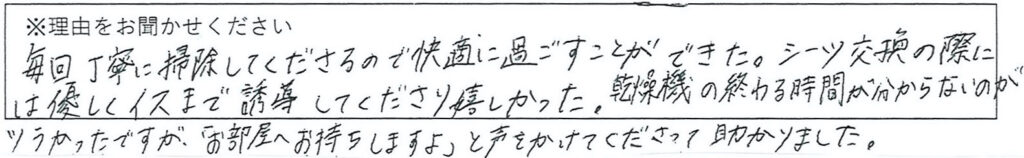 ※理由をお聞かせください
毎回丁寧に掃除してくださるので快適に過ごすことができた。シーツ交換の際に
は優しくイスまで誘導してくださり嬉しかった。乾燥機の終わる時間が分からないのが
ツラかったですが、「お部屋へお持ちしますよ」と声をかけてくださって助かりました。